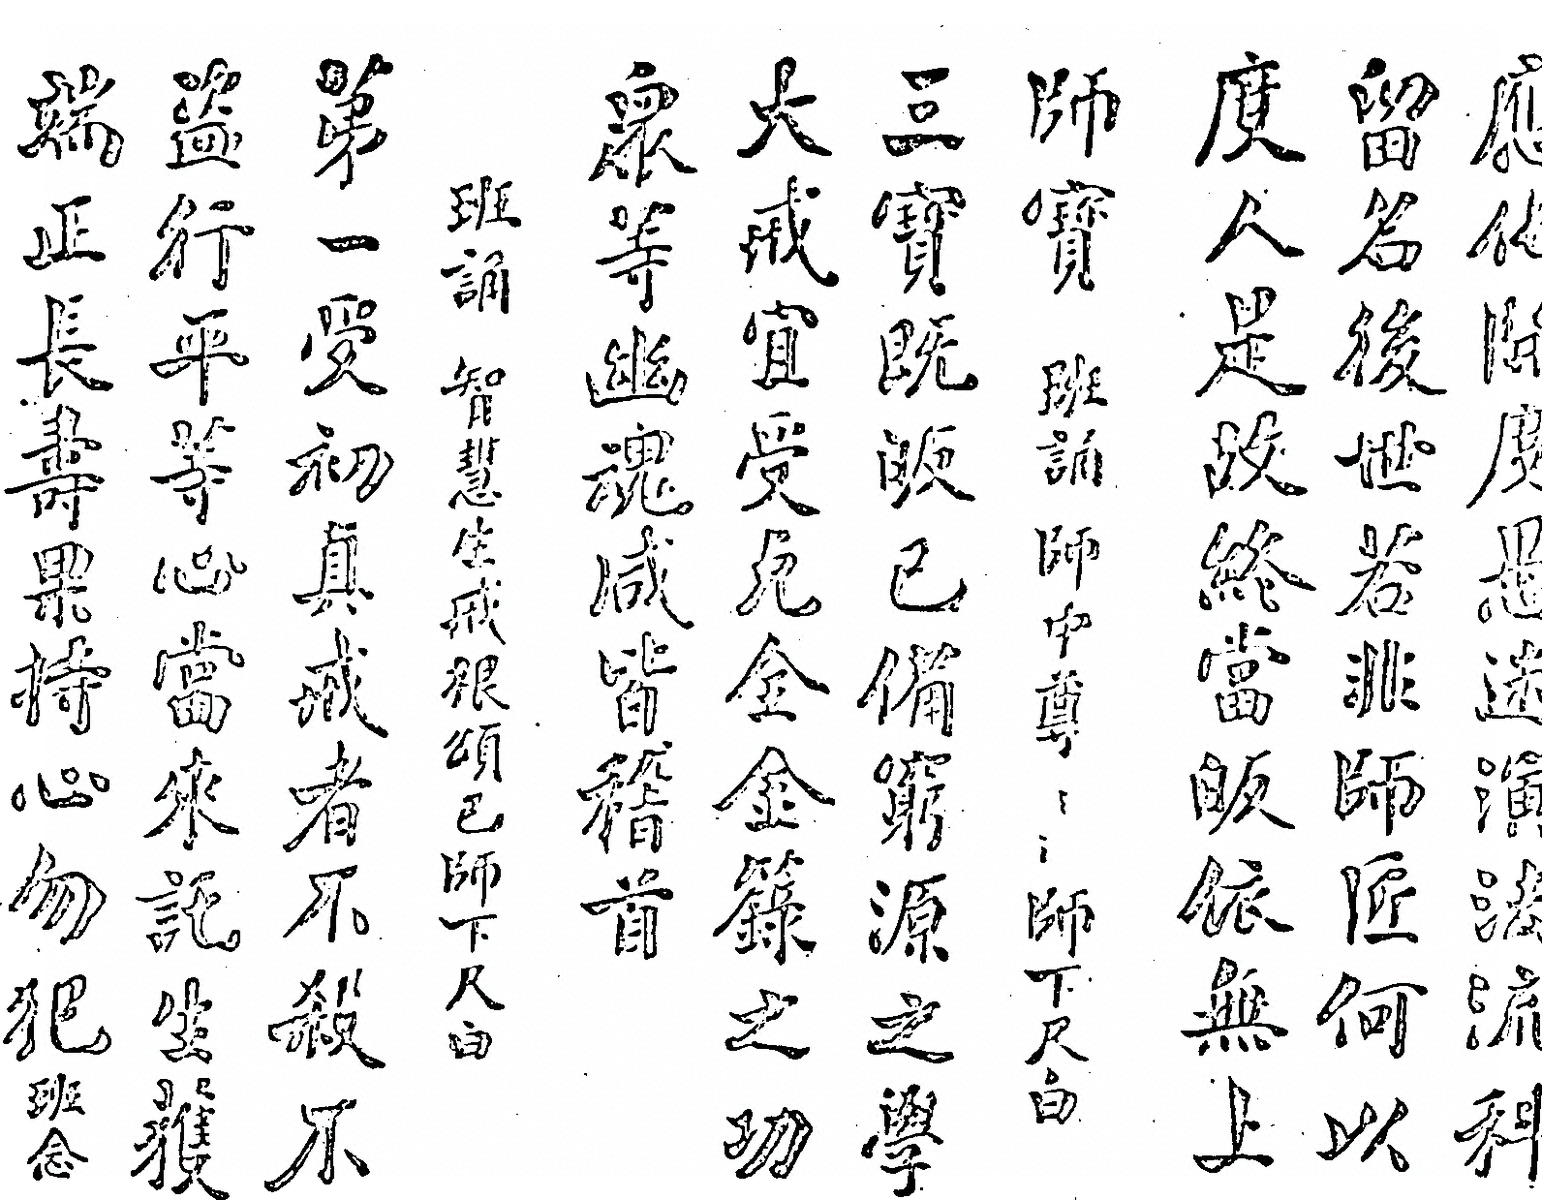 應化開度愚迷演法流科
留名後世若非師匠何以
度人是故終當皈依無上
師寶 班誦 師中尊〻〻師下尺白
三寶既皈已備窮源之學
大戒宜受允金金籙之功
眾等幽魂咸皆稽首
班誦 智慧生戒根頌已師下尺白
第一受初真戒者不殺不
盜行平等心當來託生獲
端正長壽果持心勿犯 班念